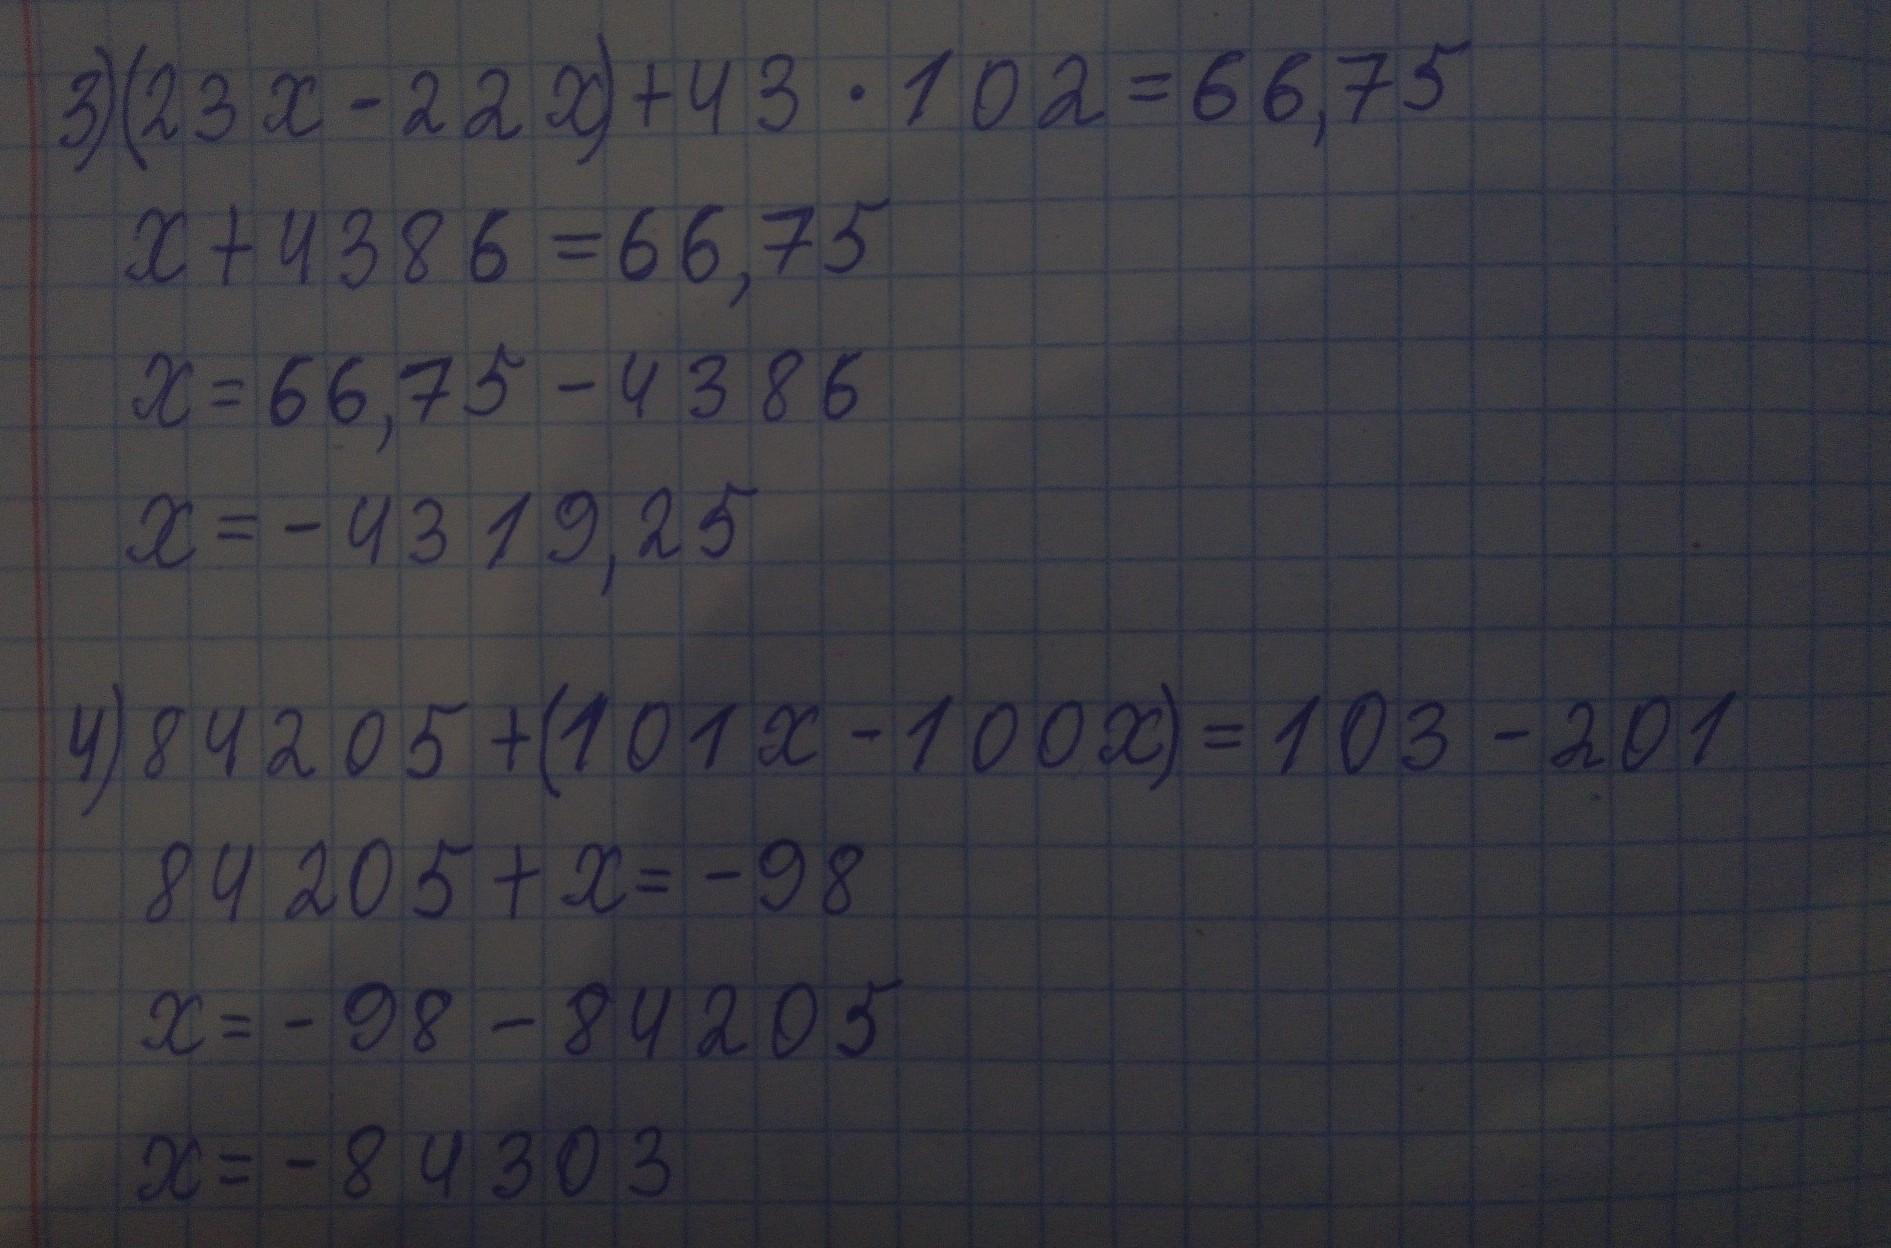 3)(23x-22x)+43·102=66,75
x+4386=66,75
x=66,75-4386
x=-4319,25
4)84205+(101x-100x)=103-201
84205+x=-98
x=-98-84205
x=-84303